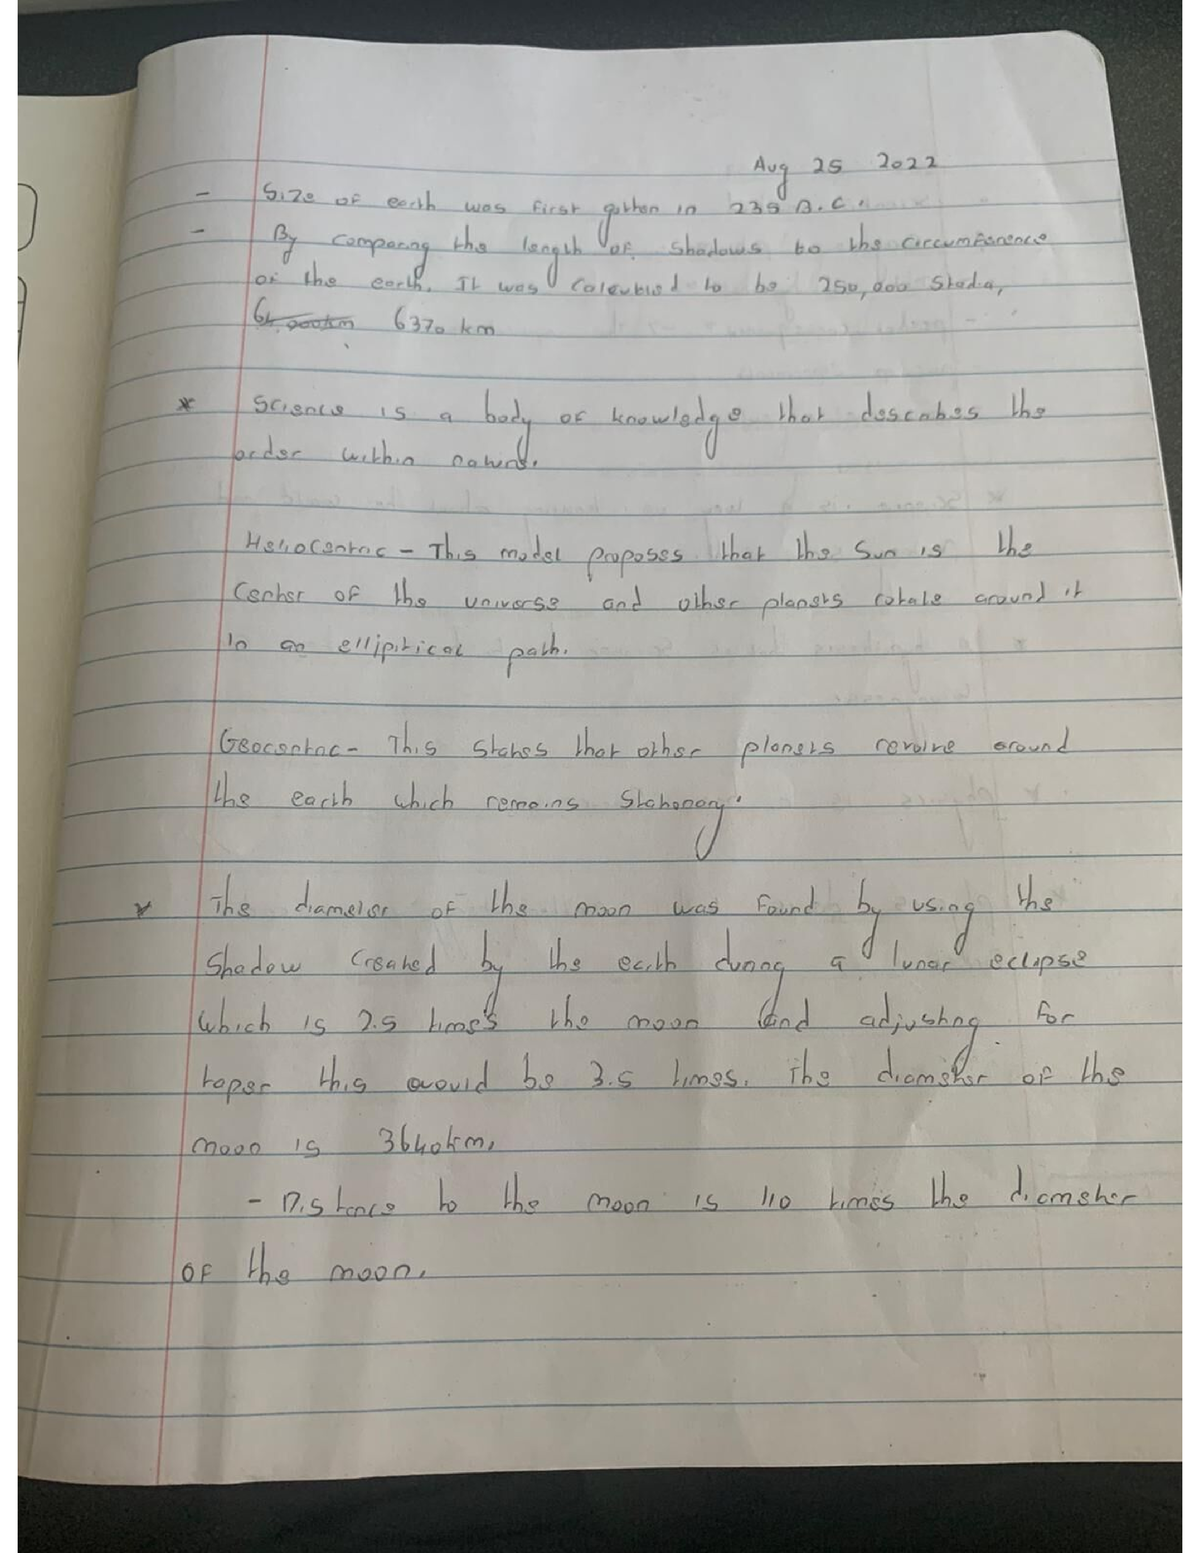 Aug 25 2022
- Size of earth was first gotten in 235 B.C.
- By comparing the length of shadows to the circumference
of the earth. It was calculated to be 250,000 Stadia,
64 000km 6370 km
* Science is a body of knowledge that describes the
order within nature.
Heliocentric - This model proposes that the Sun is the
Center of the universe and other planets rotate around it
in an elliptical path.
Geocentric - This states that other planets revolve around
the earth which remains Stationary.
* The diameter of the moon was found by using the
Shadow created by the earth during a lunar eclipse
which is 2.5 times the moon and adjusting for
taper this would be 3.5 times. The diameter of the
moon is 3640km.
- Distance to the moon is 110 times the diameter
of the moon.